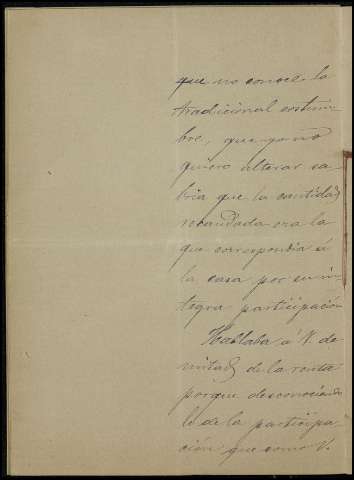 que no conoce la
tradicional costum-
bre, que yo no
quiero alterar sa-
bria que la cantidad
recaudada era la
que correspondia á
la casa por su in-
tegra participación
Hablaba á V. de
mitad de la renta
porque desconocien
lo de la participa-
ción que como V.